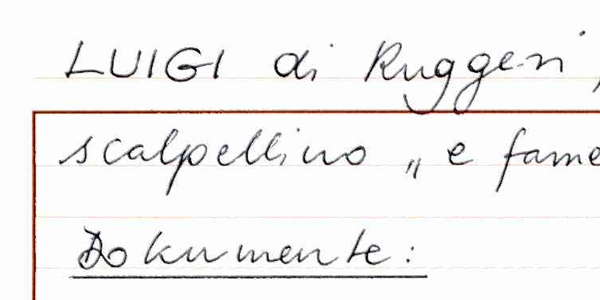 LUIGI di Ruggeri,
scalpellino „ e fame
Dokumente: